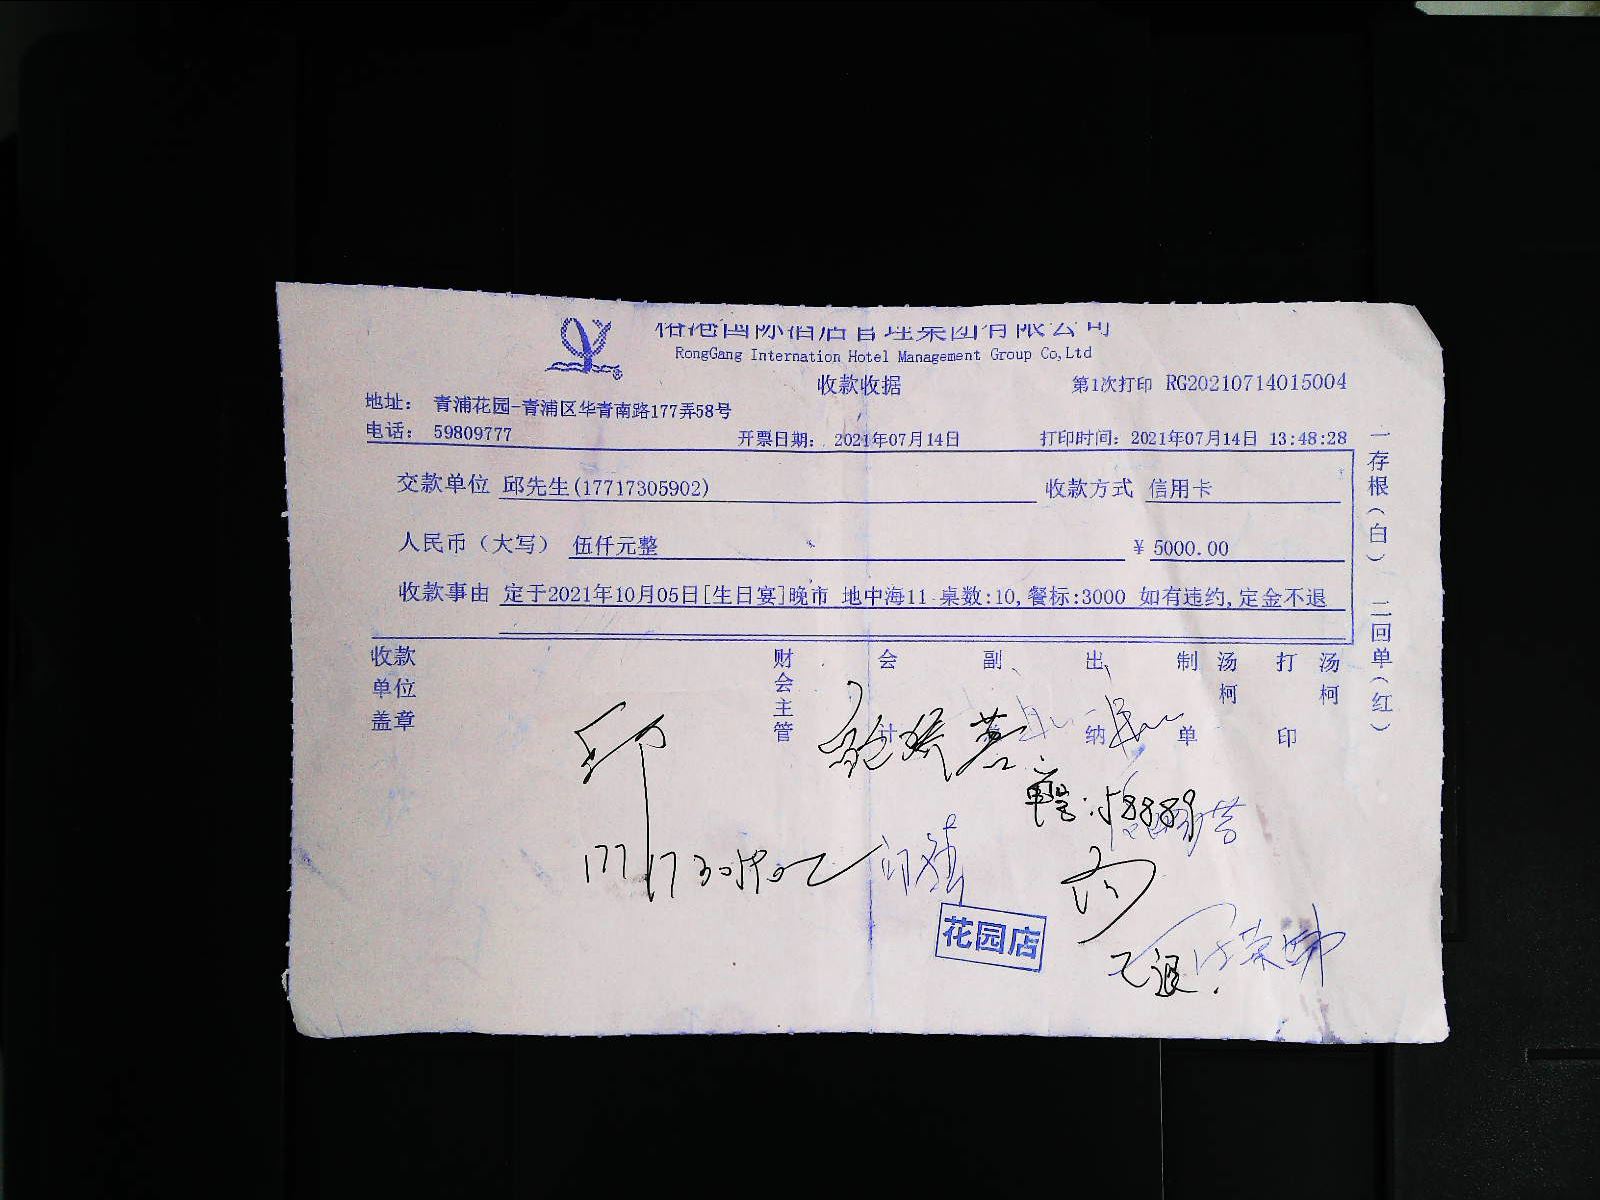 榕港国际酒店管理集团有限公司
RongGang Internation Hotel Management Group Co,Ltd
收款收据
第1次打印 RG20210714015004
地址： 青浦花园-青浦区华青南路177弄58号
电话： 59809777
开票日期： 2021年07月14日
打印时间：2021年07月14日 13:48:28
交款单位 邱先生(17717305902)
收款方式 信用卡
人民币（大写） 伍仟元整
￥ 5000.00
收款事由 定于2021年10月05日[生日宴]晚市 地中海11 桌数:10,餐标:3000 如有违约,定金不退
一存根（白） 二回单（红）
收款单位盖章
财会主管
会计
副
出纳
制单
汤柯
打印
汤柯
邱
17717305902
58889
花园店
已退.